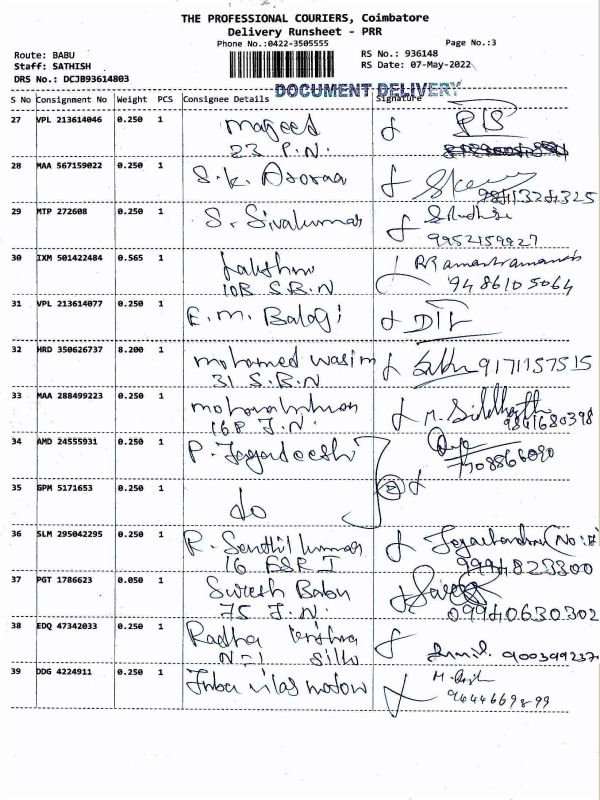 THE PROFESSIONAL COURIERS, Coimbatore
Delivery Runsheet - PRR
Phone No.:0422-3505555
Page No.:3
Route: BABU
Staff: SATHISH
DRS No.: DCJB93614803
RS No.: 936148
RS Date: 07-May-2022
DOCUMENT DELIVERY
S No Consignment No Weight PCS Consignee Details Signature
27 VPL 213614046 0.250 1 Majeed
23 P.N.
28 MAA 567159022 0.250 1 S.K.
29 MTP 272608 0.250 1 S. Sivakumar
9952159927
30 IXM 501422484 0.565 1 Lakshmi
10B S.B.N 9486105064
31 VPL 213614077 0.250 1 E.M. Balaji
32 HRD 350626737 8.200 1 mohamed wasim 9171157515
31 S.B.N
33 MAA 288499223 0.250 1 M. Siddharth
16P J.N. 9841680398
34 AMD 24555931 0.250 1 P. Jagadeesh
35 GPM 5171653 0.250 1 do
36 SLM 295042295 0.250 1 R. Senthil kumar
16
37 PGT 1786623 0.050 1 Suresh Babu
75 J.N. 09940630302
38 EDQ 47342033 0.250 1 Radha krishna
39 DDG 4224911 0.250 1